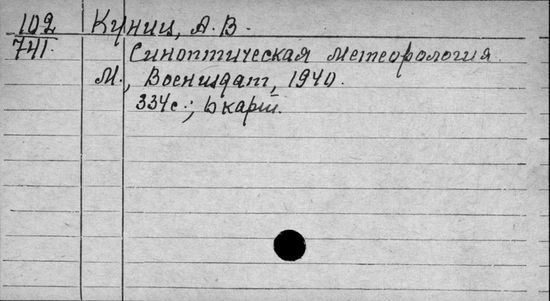 102 Куниц, А. В.
741. Синоптическая метеорология.
М., Воениздат, 1940.
334с.; 6 карт.